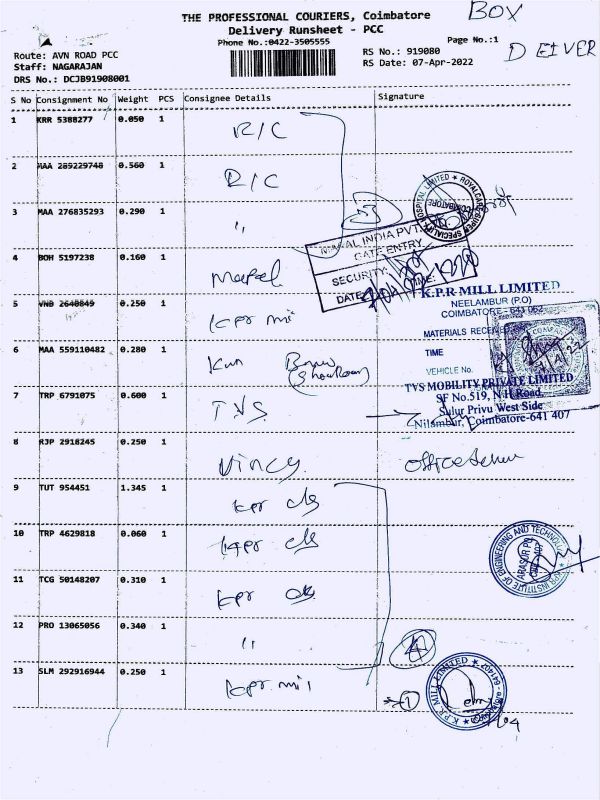 THE PROFESSIONAL COURIERS, Coimbatore
BOX
Delivery Runsheet - PCC
Phone No.:0422-3505555
Page No.:1
D EIVER
Route: AVN ROAD PCC
Staff: NAGARAJAN
DRS No.: DCJB91908001
RS No.: 919080
RS Date: 07-Apr-2022
S No Consignment No Weight PCS Consignee Details Signature
1 KRR 5388277 0.050 1 R/C
2 MAA 289229748 0.560 1 R/C
3 MAA 276835293 0.290 1 "
ROYALCARE SUPER SPECIALITY HOSPITAL LIMITED
COIMBATORE
INDIA PVT.
GATE ENTRY
SECURITY:
DATE: TIME:
4 BOH 5197238 0.160 1
K.P.R MILL LIMITED
NEELAMBUR (P.O)
COIMBATORE - 641 062
5 VNB 2640849 0.250 1 kpr mi
MATERIALS RECEIVED
TIME
VEHICLE No.
6 MAA 559110482 0.280 1
TVS MOBILITY PRIVATE LIMITED
SF No.519, N.H.Road,
Sulur Privu West Side
Nilambur, Coimbatore-641 407
7 TRP 6791075 0.600 1 TVS
8 RJP 2918245 0.250 1 Vincy
9 TUT 954451 1.345 1 kpr
10 TRP 4629818 0.060 1 kpr
KPR INSTITUTE OF ENGINEERING AND TECHNOLOGY
11 TCG 50148207 0.310 1 kpr
12 PRO 13065056 0.340 1 "
4
13 SLM 292916944 0.250 1 kpr mil
1
K.P.R. MILL LIMITED